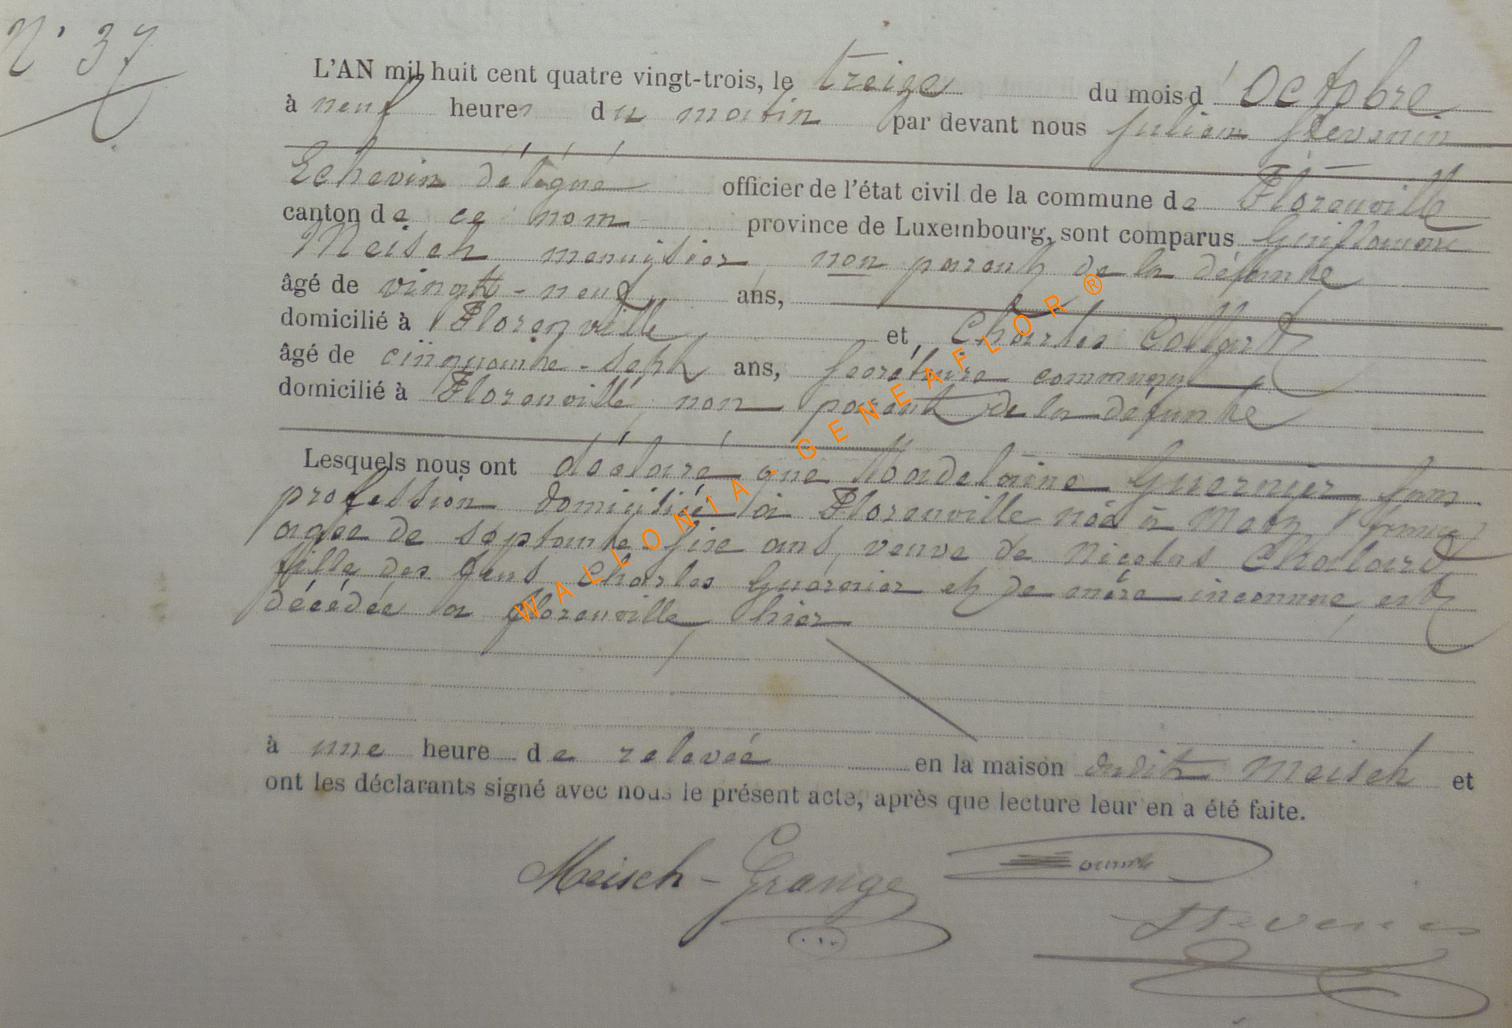 N° 37
L'AN mil huit cent quatre vingt-trois, le treize du mois d'Octobre
à neuf heures du matin par devant nous Julien Stevenin
Echevin délégué officier de l'état civil de la commune de Florenville
canton de ce nom province de Luxembourg, sont comparus Guillaume
Meisch menuisier, non parent de la défunte
âgé de vingt-neuf ans,
domicilié à Florenville et Charles Collard
âgé de cinquante-sept ans, secrétaire communal
domicilié à Florenville, non parent de la défunte
Lesquels nous ont déclaré que Madelaine Guernier sans
profession domiciliée à Florenville née à Metz (France)
agée de septante-six ans, veuve de Nicolas Chalard
fille des feus Charles Guernier et de mère inconnue, est
décédée à Florenville, hier
à une heure de relevée en la maison dudit Meisch et
ont les déclarants signé avec nous le présent acte, après que lecture leur en a été faite.
Meisch-Grange
Stevenin
WALLONIA - GENEAFLOR ®